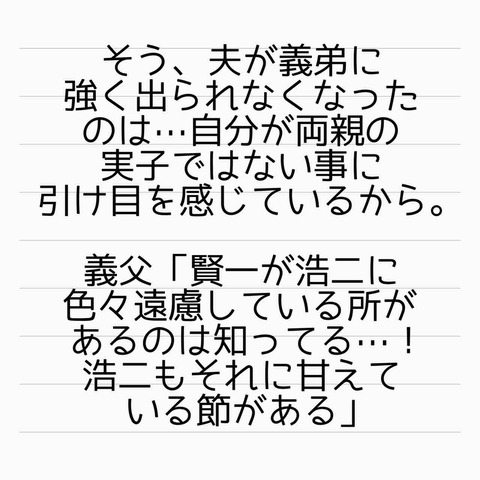 そう、夫が義弟に
強く出られなくなった
のは…自分が両親の
実子ではない事に
引け目を感じているから。
義父「賢一が浩二に
色々遠慮している所が
あるのは知ってる…！
浩二もそれに甘えて
いる節がある」